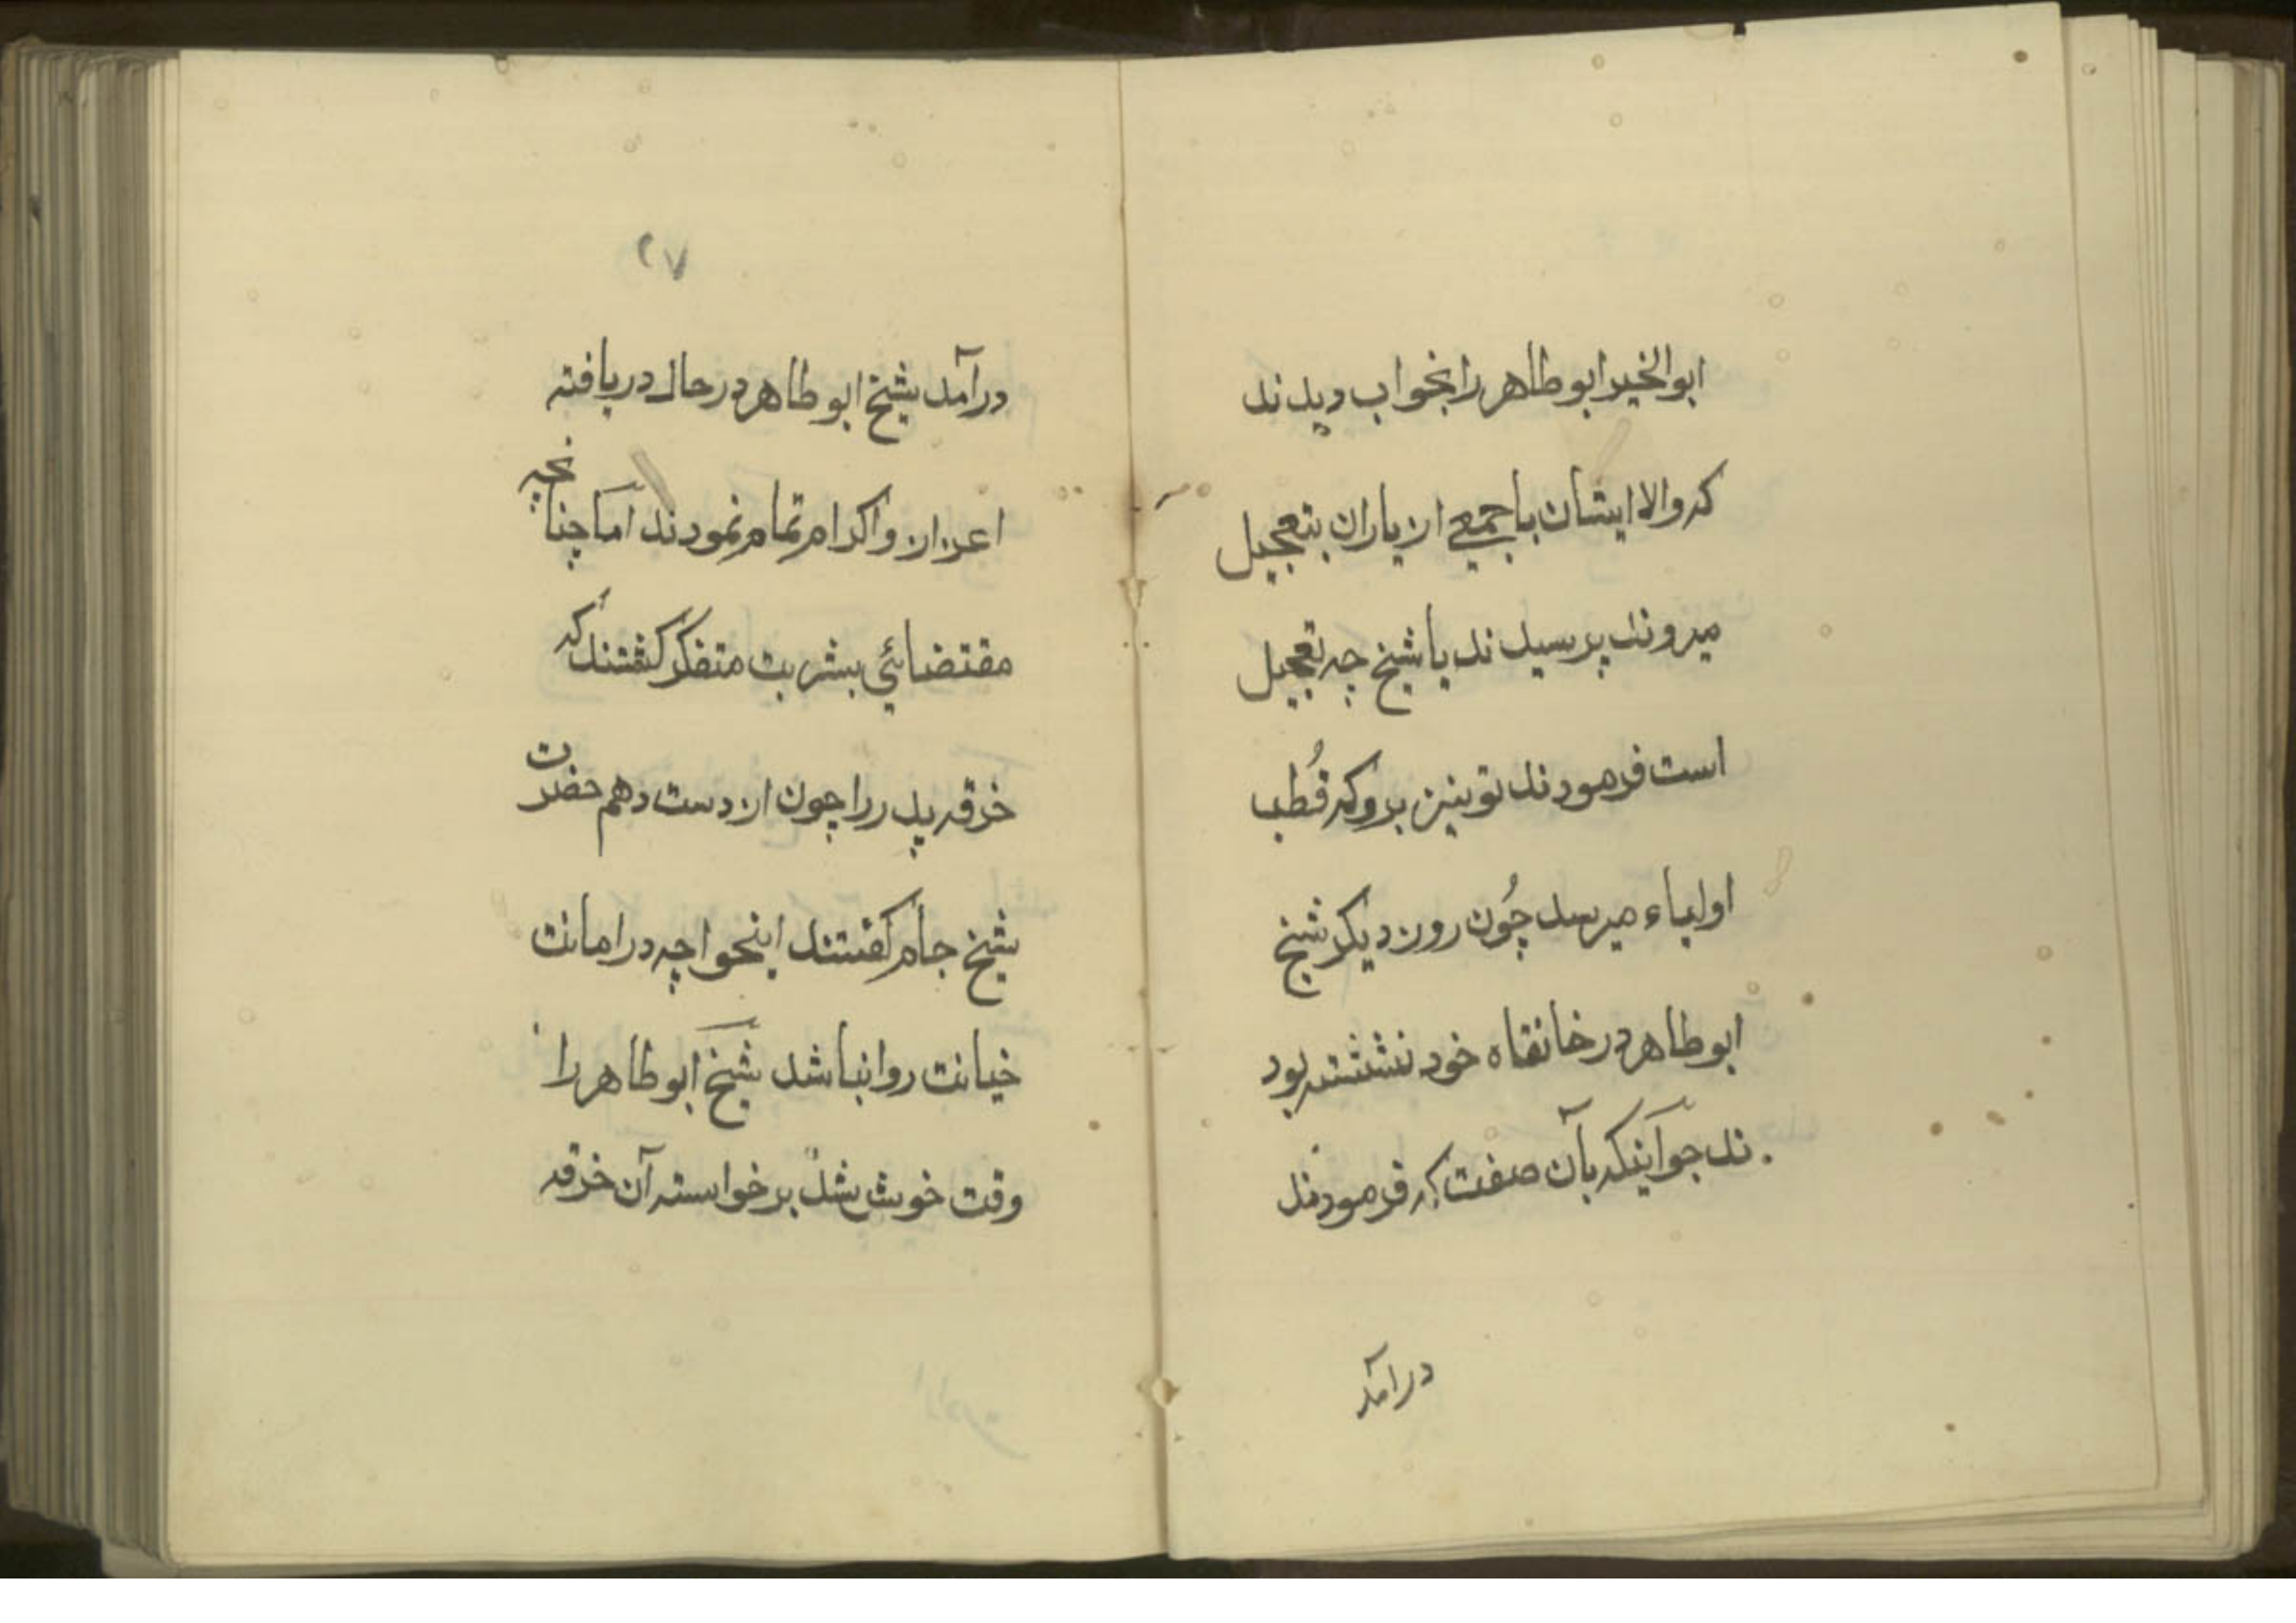 ابوالخیر ابو طاهر را بخواب دیدند
که والا ایشان با جمعے از یاران بتعجیل
میروند پرسیدند یا شیخ چه تعجیل
است فرمودند تو نیز برو که قُطب
اولیاء میرسد چُون روز دیکر شیخ
ابو طاهر در خانقاه خود نشسته بود
ند جوآنیکه بآن صفت که فرمودند
درآمد
٢٧
درآمد شیخ ابو طاهر در حال دریافته
اعزاز و اکرام تمام نمودند اما چنانچه
مقتضائي بشریت متفکر کشتند که
خرقه پدر را چون از دست دهم حضرت
شیخ جام کفتند اینخواجه در امانت
خیانت روا نباشد شیخ ابو طاهر را
وقت خوش شد برخواسته آن خرقه